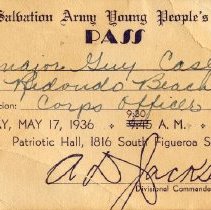 Salvation Army Young People's
PASS
major Guy Case
Redondo Beach
Corps Officer
AY, MAY 17, 1936 9:30 9:45 A. M.
Patriotic Hall, 1816 South Figueroa S
A D Jacks
Divisional Commande